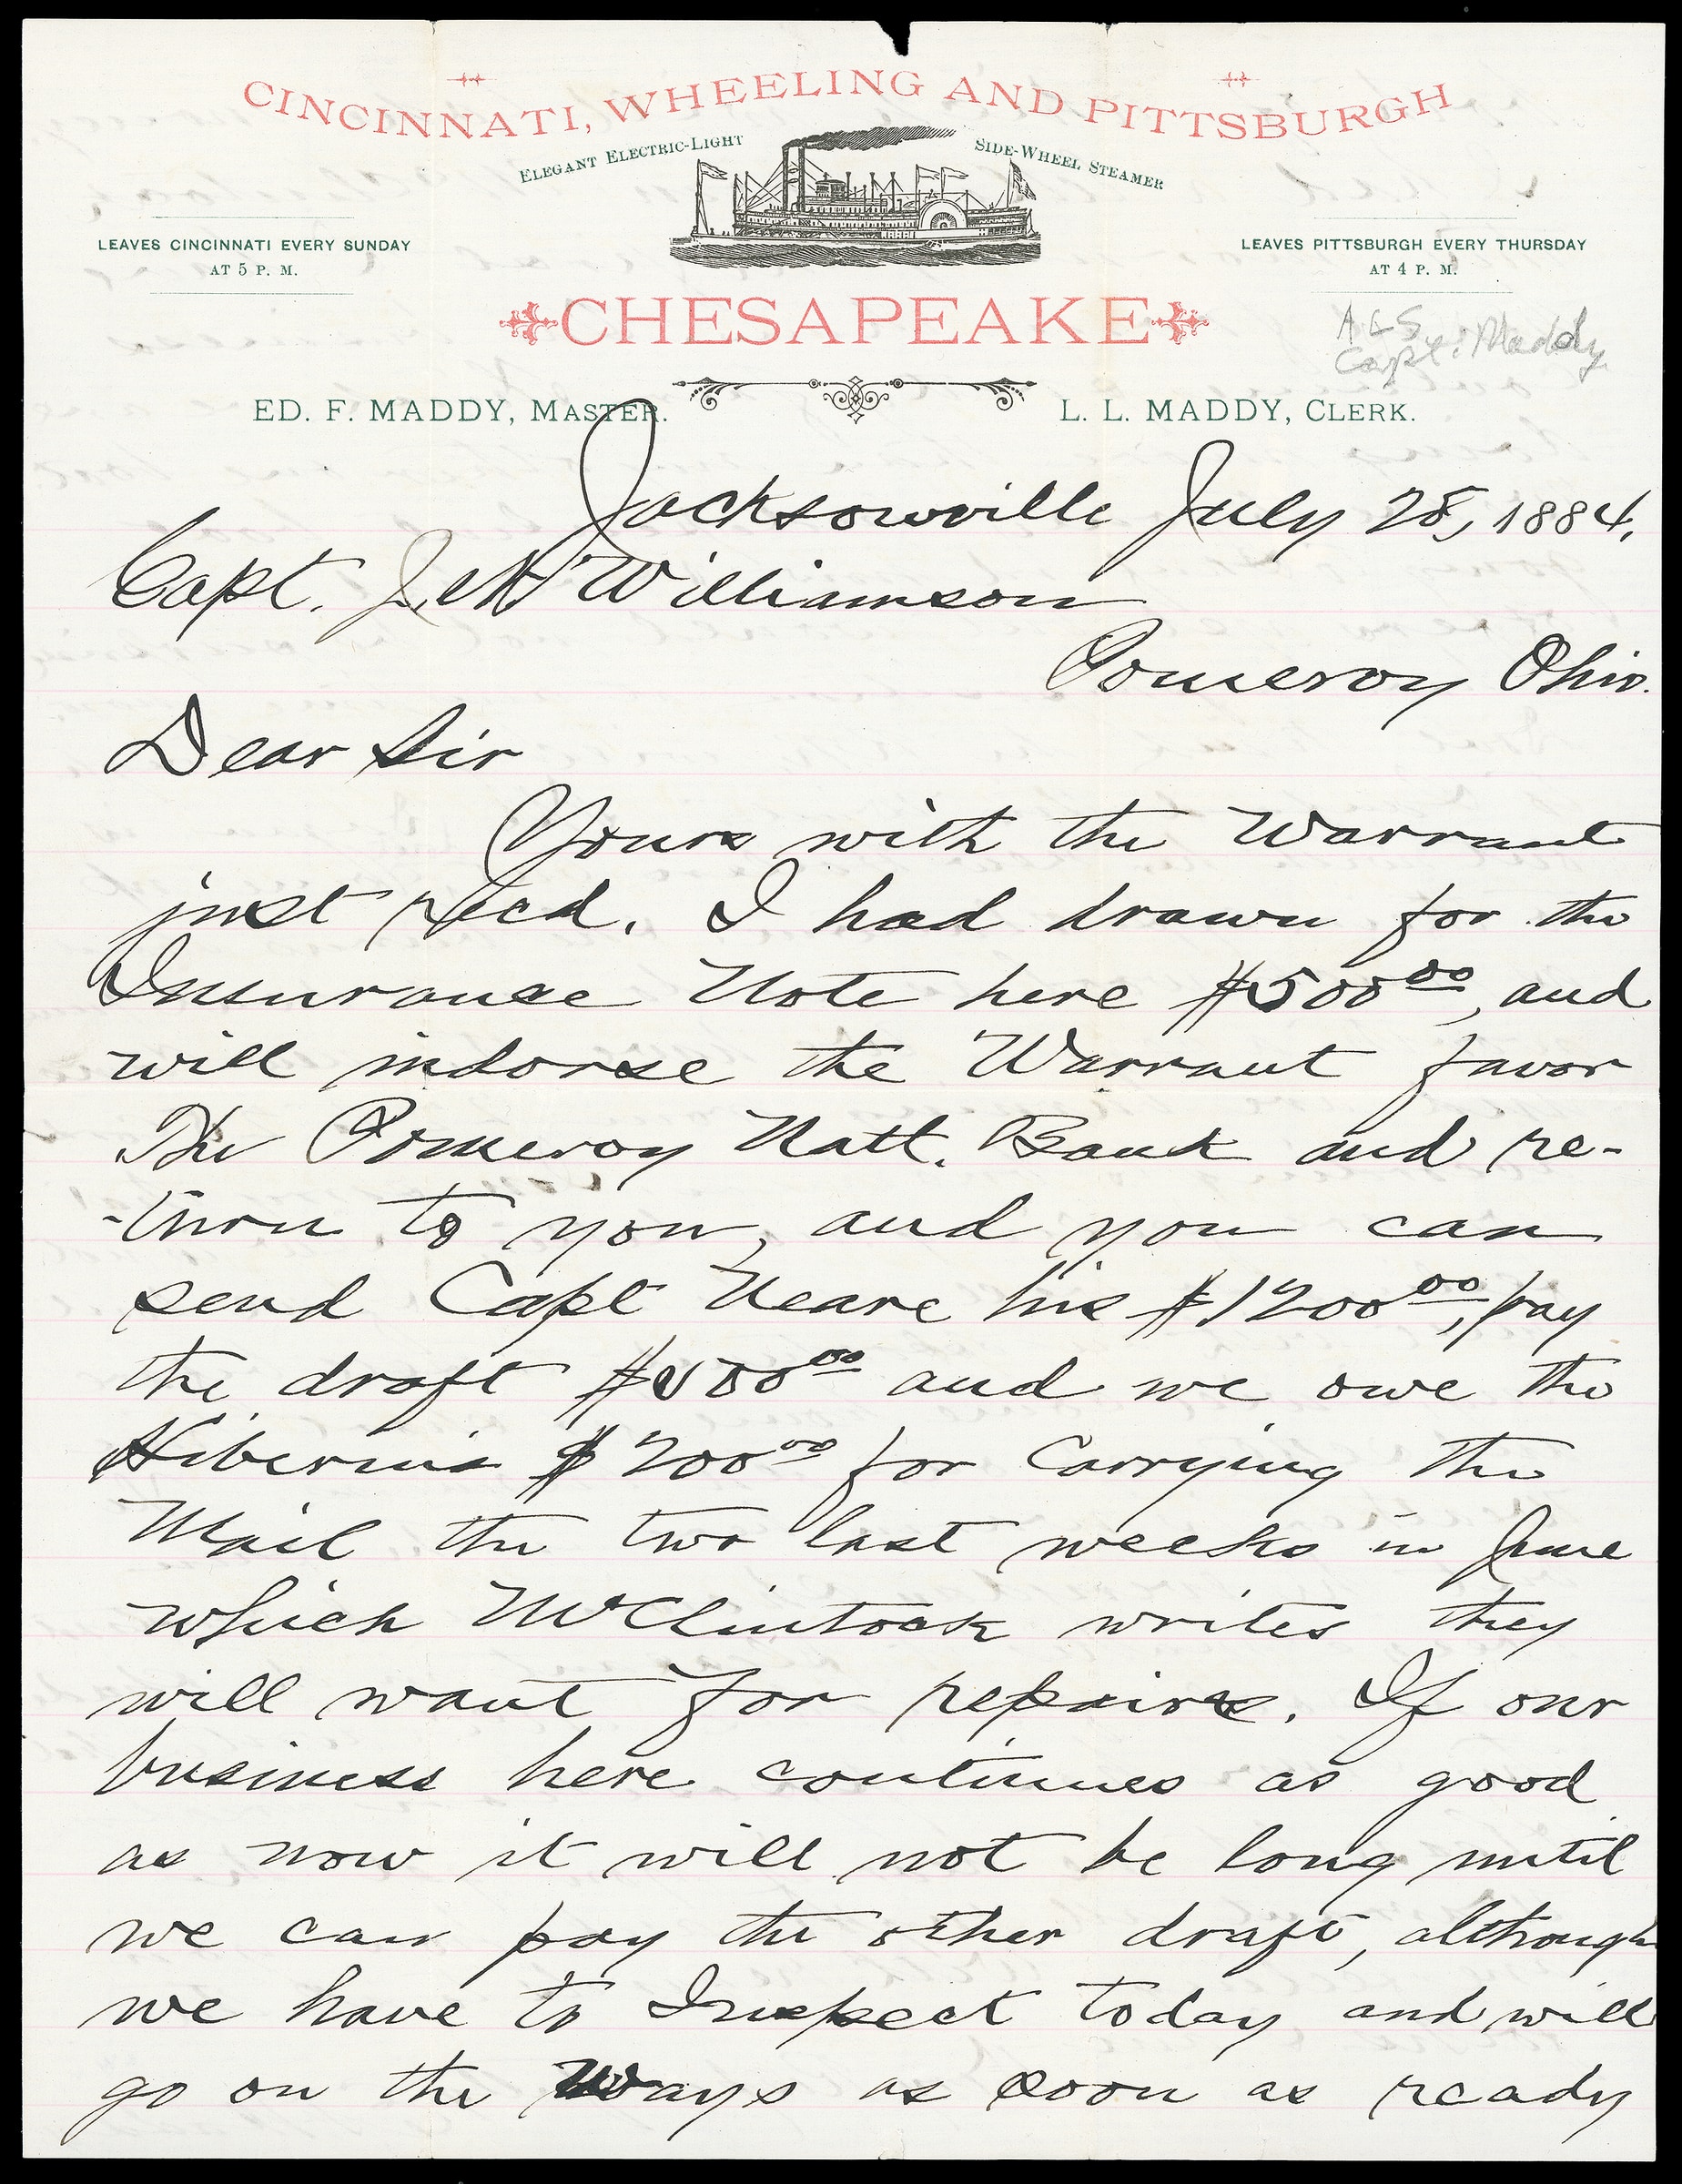 CINCINNATI, WHEELING AND PITTSBURGH
ELEGANT ELECTRIC-LIGHT
SIDE-WHEEL STEAMER
LEAVES CINCINNATI EVERY SUNDAY
AT 5 P. M.
LEAVES PITTSBURGH EVERY THURSDAY
AT 4 P. M.
CHESAPEAKE
A & S
Capt. Maddy
ED. F. MADDY, MASTER.
L. L. MADDY, CLERK.
Jacksonville July 28, 1884.
Capt. J. M Williamson
Pomeroy Ohio.
Dear Sir
Yours with the Warrant
just Recd. I had drawn for the
Insurance Note here $500 00, and
will indorse the Warrant favor
The Pomeroy Natl. Bank and re-
-turn to you, and you can
send Capt Neare his $1200 00, pay
the draft $500 00 and we owe the
Hibernia $200 00 for Carrying the
Mail the two last weeks in June
which McClintock writes they
will want for repairs. If our
business here continues as good
as now it will not be long until
we can pay the other draft, although
we have to Inspect today and will
go on the Ways as soon as ready